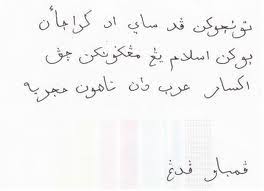 تونجوكن ڤد ساي اد كراجأن
بوكن اسلام يڠ مڠݢونكن چڤ
اكسار عرب دان تاهون هجريه
ڤمباو ڤدڠ